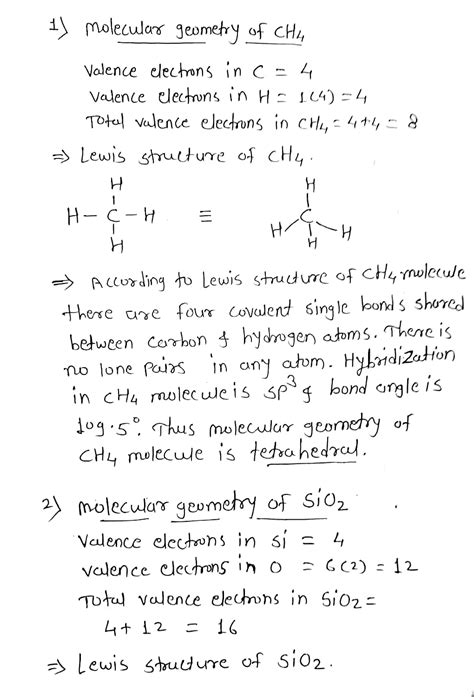 1) Molecular geometry of CH4
Valence electrons in C = 4
Valence electrons in H = 1(4) = 4
Total valence electrons in CH4 = 4+4 = 8
⇒ Lewis structure of CH4.
H H
H - C - H ≡ C
H H H H
⇒ According to Lewis structure of CH4 molecule
there are four covalent single bonds shared
between carbon & hydrogen atoms. There is
no lone pairs in any atom. Hybridization
in CH4 molecule is sp3 & bond angle is
109.5°. Thus molecular geometry of
CH4 molecule is tetrahedral.
2) Molecular geometry of SiO2
Valence electrons in Si = 4
Valence electrons in O = 6(2) = 12
Total valence electrons in SiO2 =
4+12 = 16
⇒ Lewis structure of SiO2.